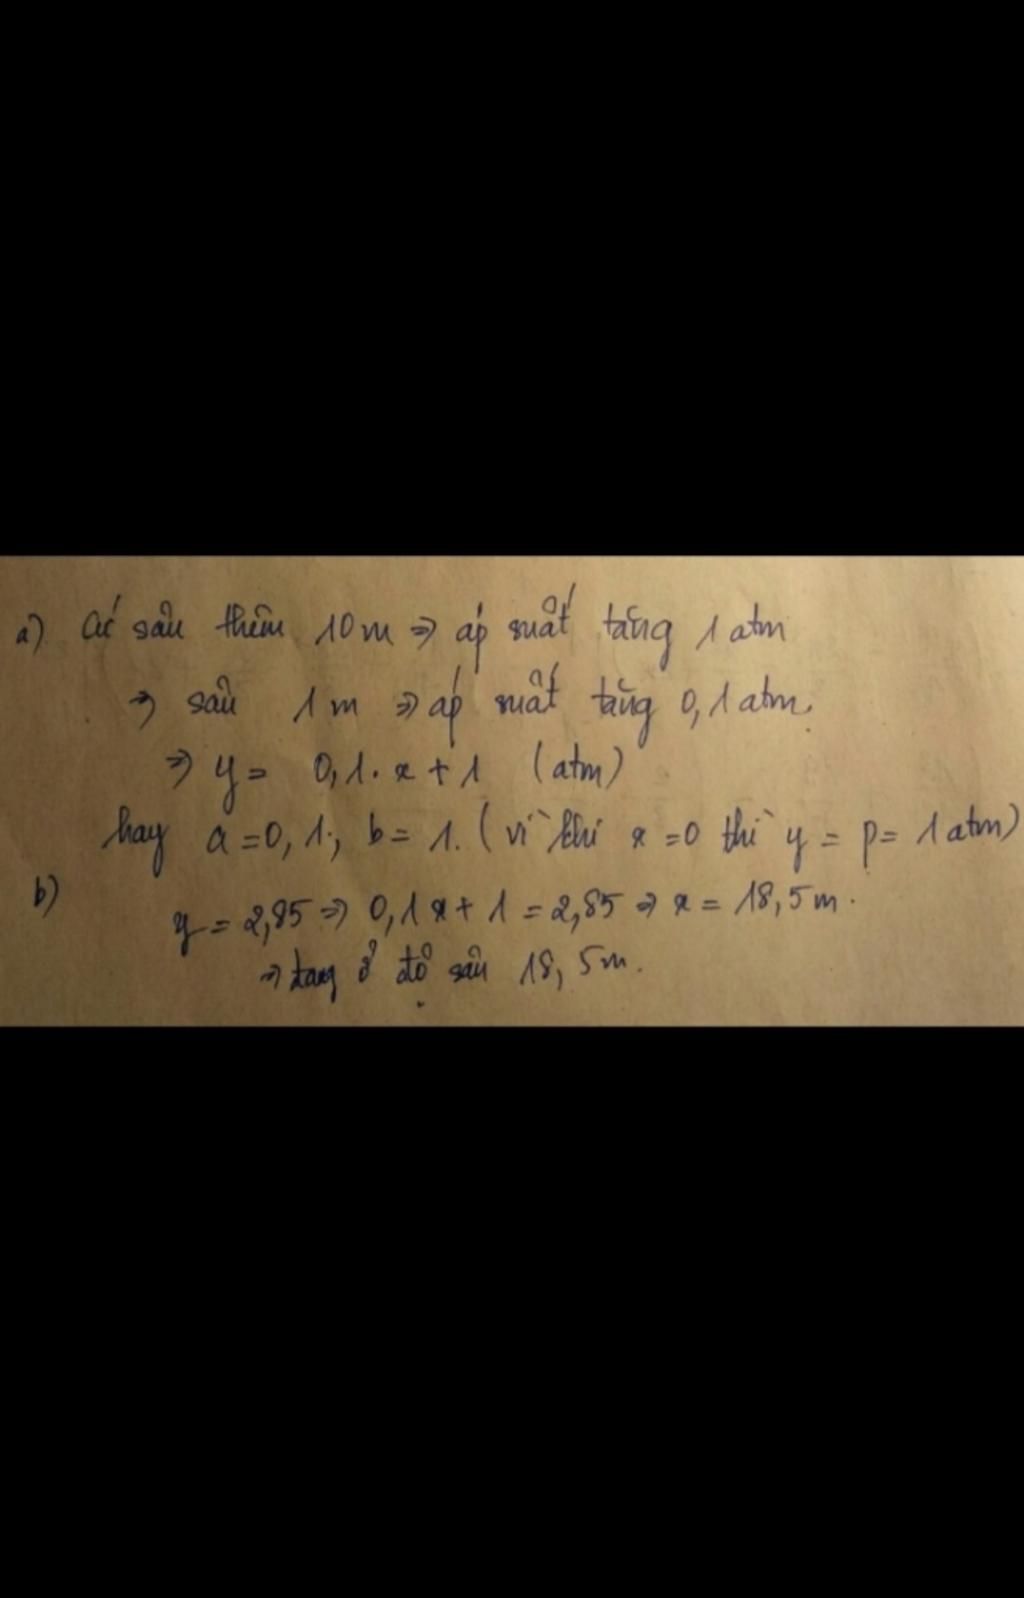 a) Cứ sâu thêm 10m ⇒ áp suất tăng 1 atm
⇒ sâu 1m ⇒ áp suất tăng 0,1 atm.
⇒ y = 0,1. x + 1 (atm)
hay a = 0,1; b = 1. (vì khi x = 0 thì y = p = 1 atm)
b) y = 2,85 ⇒ 0,1x + 1 = 2,85 ⇒ x = 18,5m.
⇒ đang ở độ sâu 18,5m.